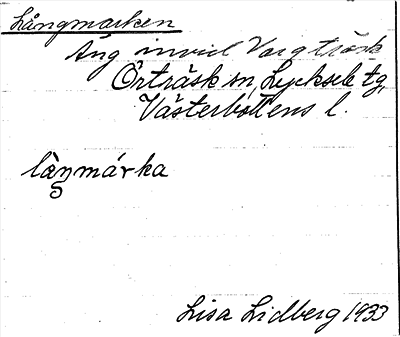 Långmarken
Äng invid Vargträsk
Örträsk sn, Lycksele tg,
Västerbottens l.
làŋmárka
Lisa Lidberg 1933